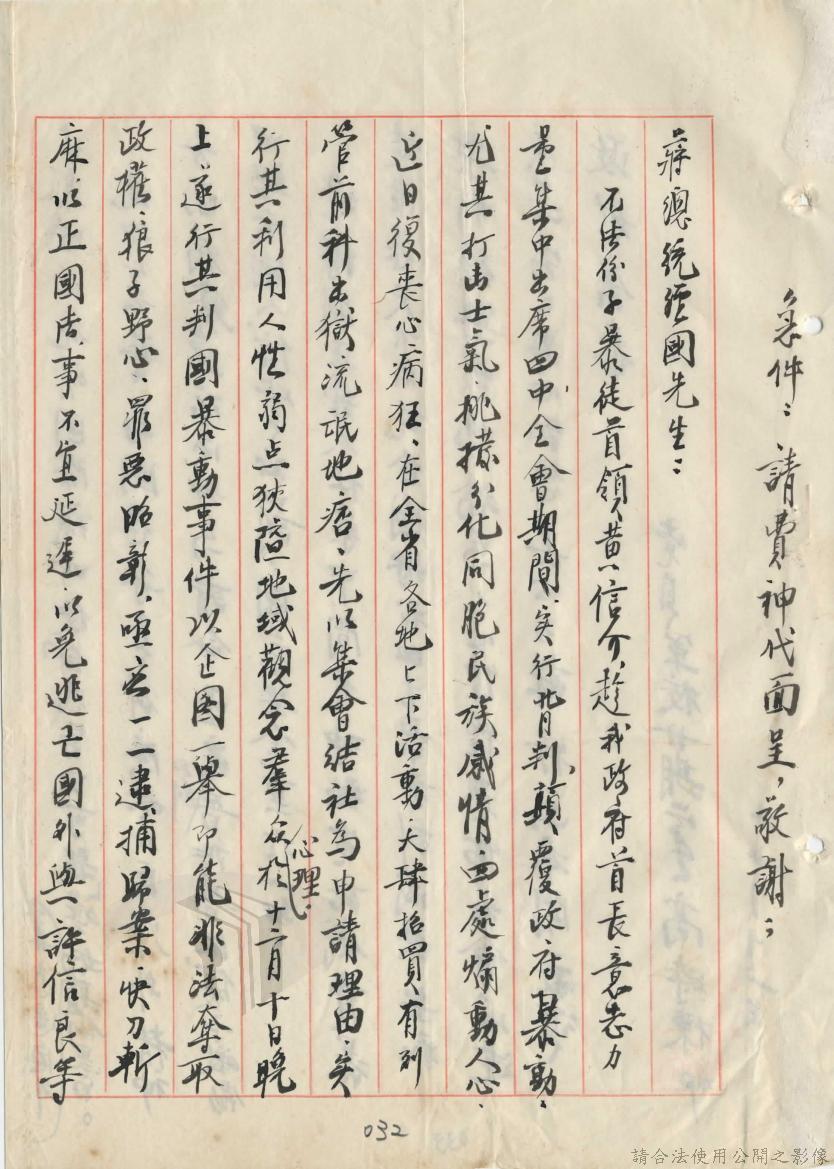 急件：請費神代面呈，敬謝；
蔣總統經國先生：
不法份子暴徒首領黃信介，趁我政府首長意志力
量集中出席四中全會期間、实行背判、顛覆政府暴動、
尤其打击士氣、挑撥分化同胞民族感情、四處煽動人心、
近日復喪心病狂、在全省各地上下活動、大肆招買、有列
管前科出獄流氓地痞、先以集會结社為申請理由、实
行其利用人性弱点狹隘地域觀念羣众心理、於十二月十日晚
上遂行其判國暴動事件以企图一舉即能非法奪取
政權、狼子野心、罪惡昭彰、亟应一一逮捕歸案、快刀斬
麻以正國法、事不宜延遲、以免逃亡國外與許信良等
032
請合法使用公開之影像